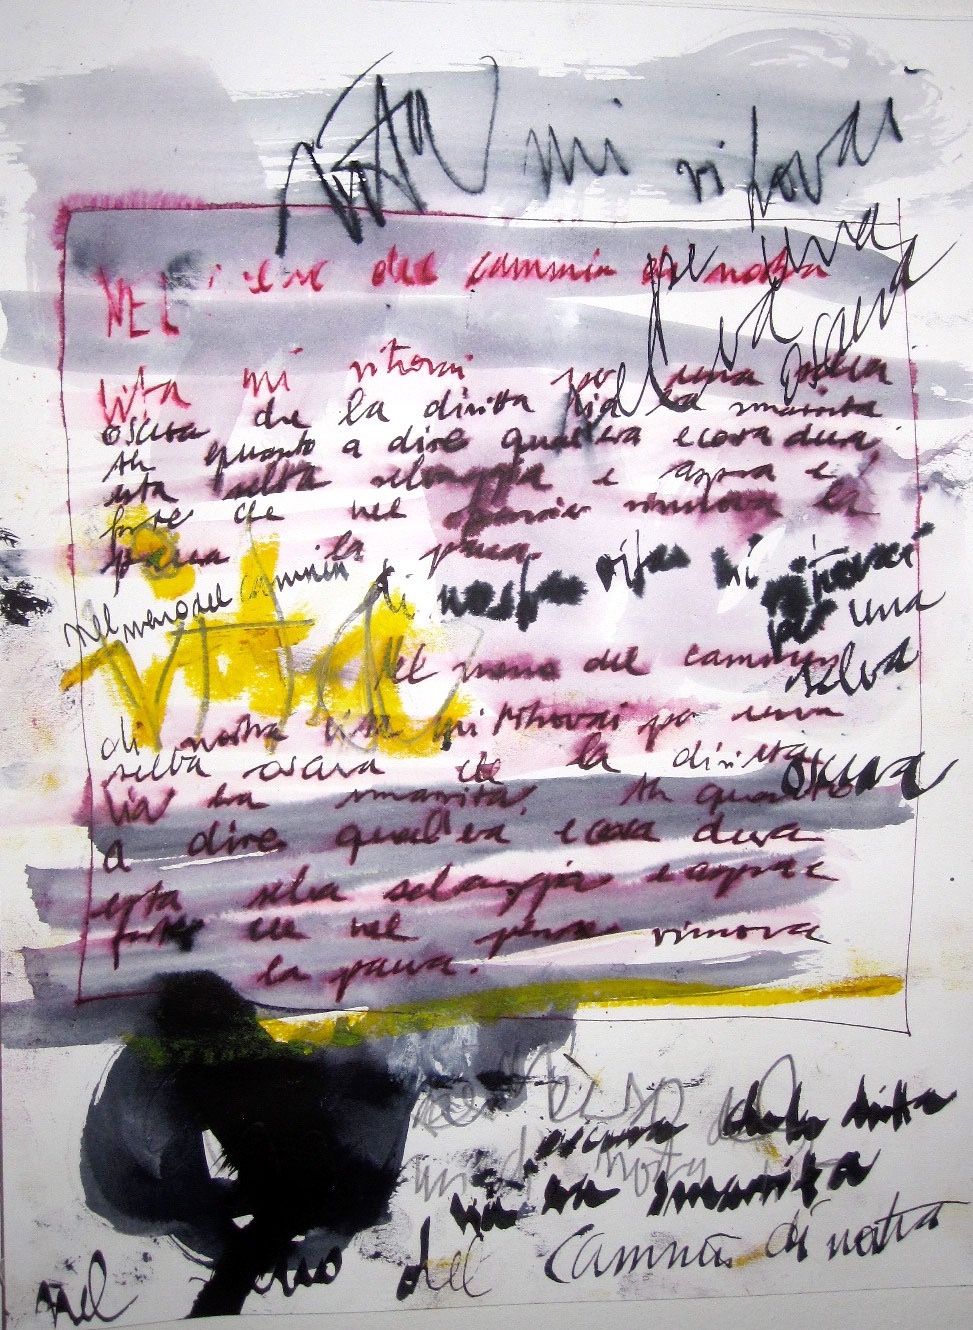 vita mi ritrovai
per una
selva oscura
NEL del cammin di nostra
vita mi ritrovai per una selva
oscura che la diritta via era smarrita
Ah quanto a dire qual era e cosa dura
esta selva selvaggia e aspra e
forte che nel pensier rinnova la
paura la paura
Nel mezzo del cammin di nostra vita mi ritrovai
per una
selva
oscura
vita
Nel mezzo del cammin
di nostra vita mi ritrovai per una
selva oscura che la diritta
via era smarrita. Ah quanto
a dire qual era e cosa dura
esta selva selvaggia e aspra e
forte che nel pensier rinnova
la paura.
oscura che la diritta
via era smarrita
nel del cammin di nostra